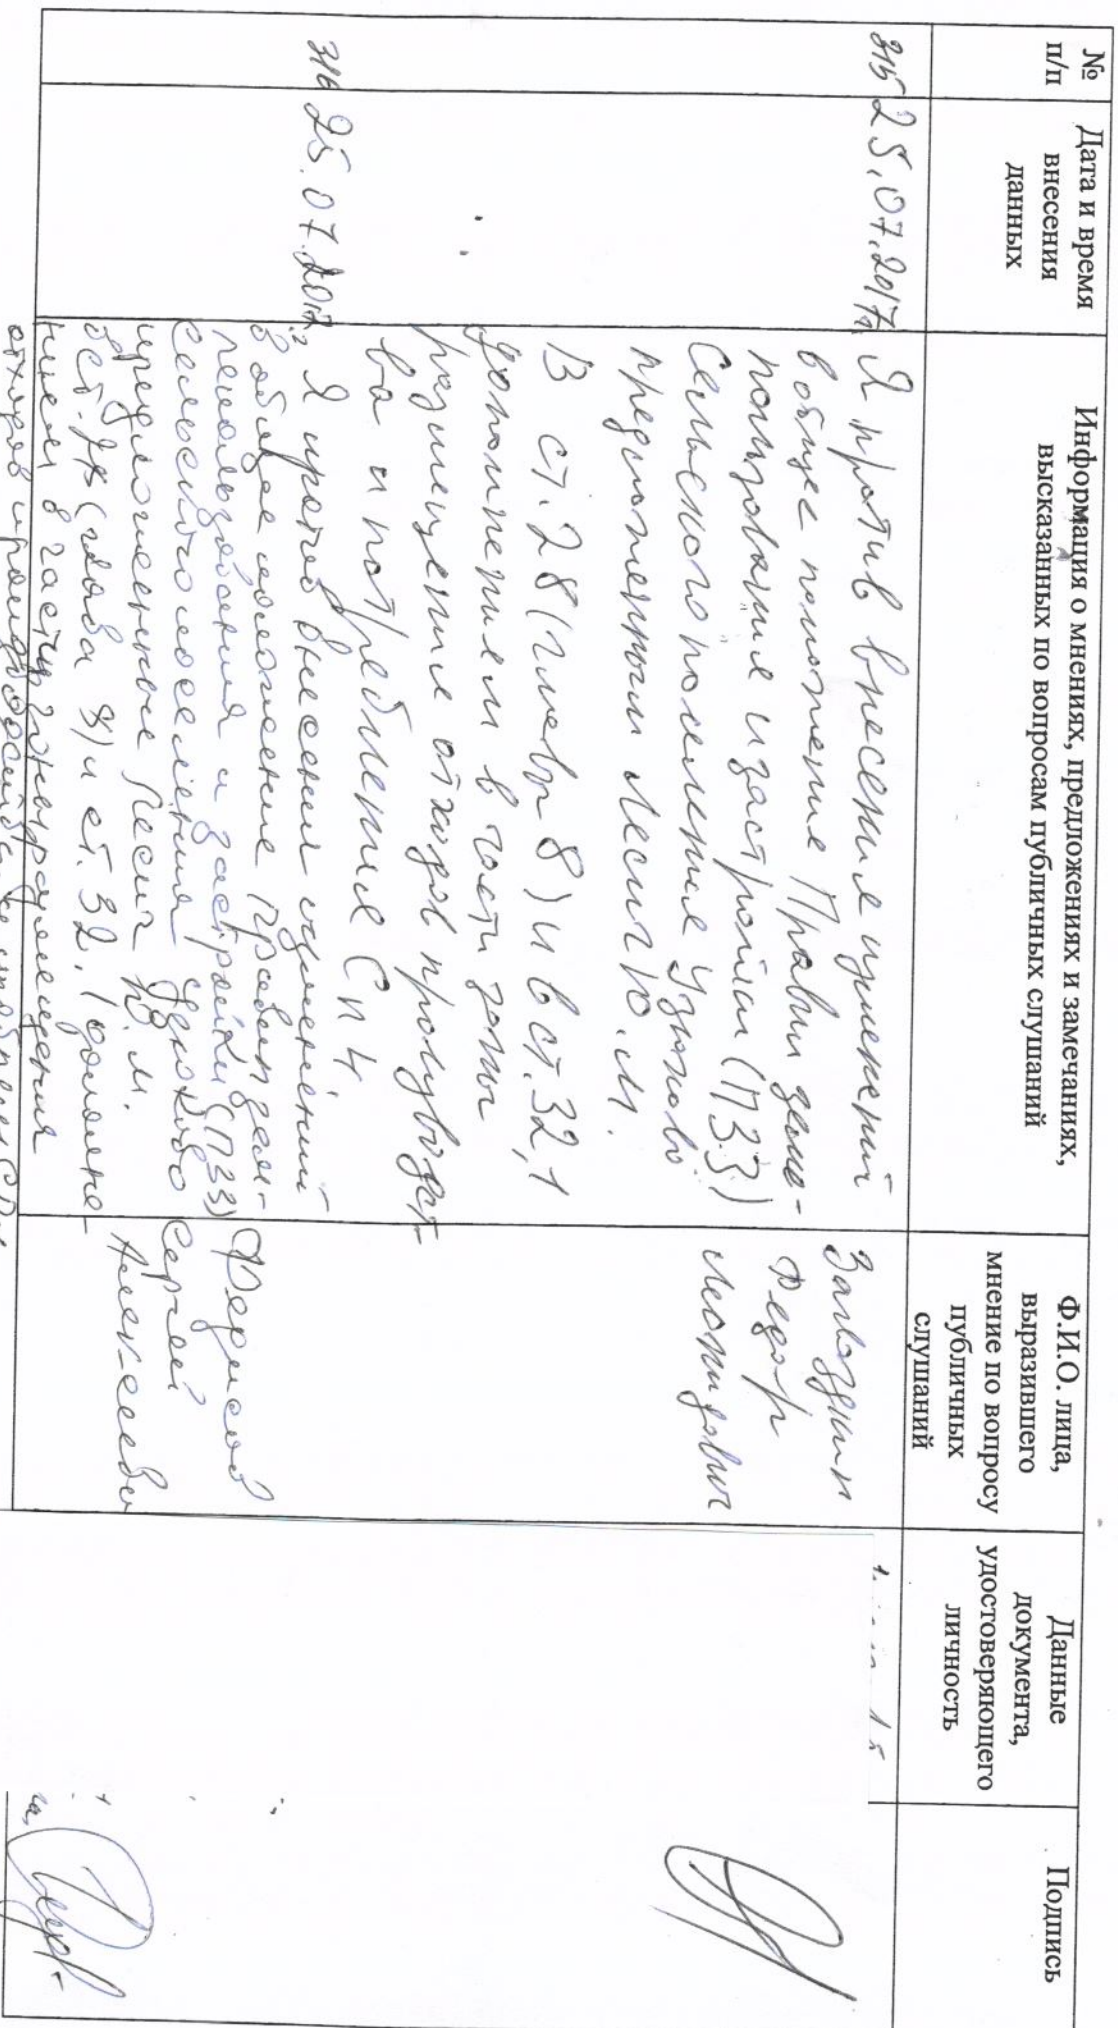 № п/п
Дата и время внесения данных
Информация о мнениях, предложениях и замечаниях, высказанных по вопросам публичных слушаний
Ф.И.О. лица, выразившего мнение по вопросу публичных слушаний
Данные документа, удостоверяющего личность
Подпись
315
25.07.2017г.
Я против внесения изменений
в общее положение Правил земле-
пользования и застройки (ПЗЗ)
Сельского поселения Узюково
предложенными Лесич Ю.М.
В ст. 28 (глава 8) и в ст. 32,1
дополнением в части зоны
размещение отходов производст-
ва и потребления Сп 4.
Федор
Леонидович
316
25.07.2017г
Я против внесения изменений
в общее положение Правил зем-
лепользования и застройки (ПЗЗ)
сельского поселения Узюково
предложенные Лесич Ю.М.
в ст. 28 (глава 8) и ст. 32.1 дополне-
нием в части зоны размещения
отходов производства и
Сергей
Алексеевич